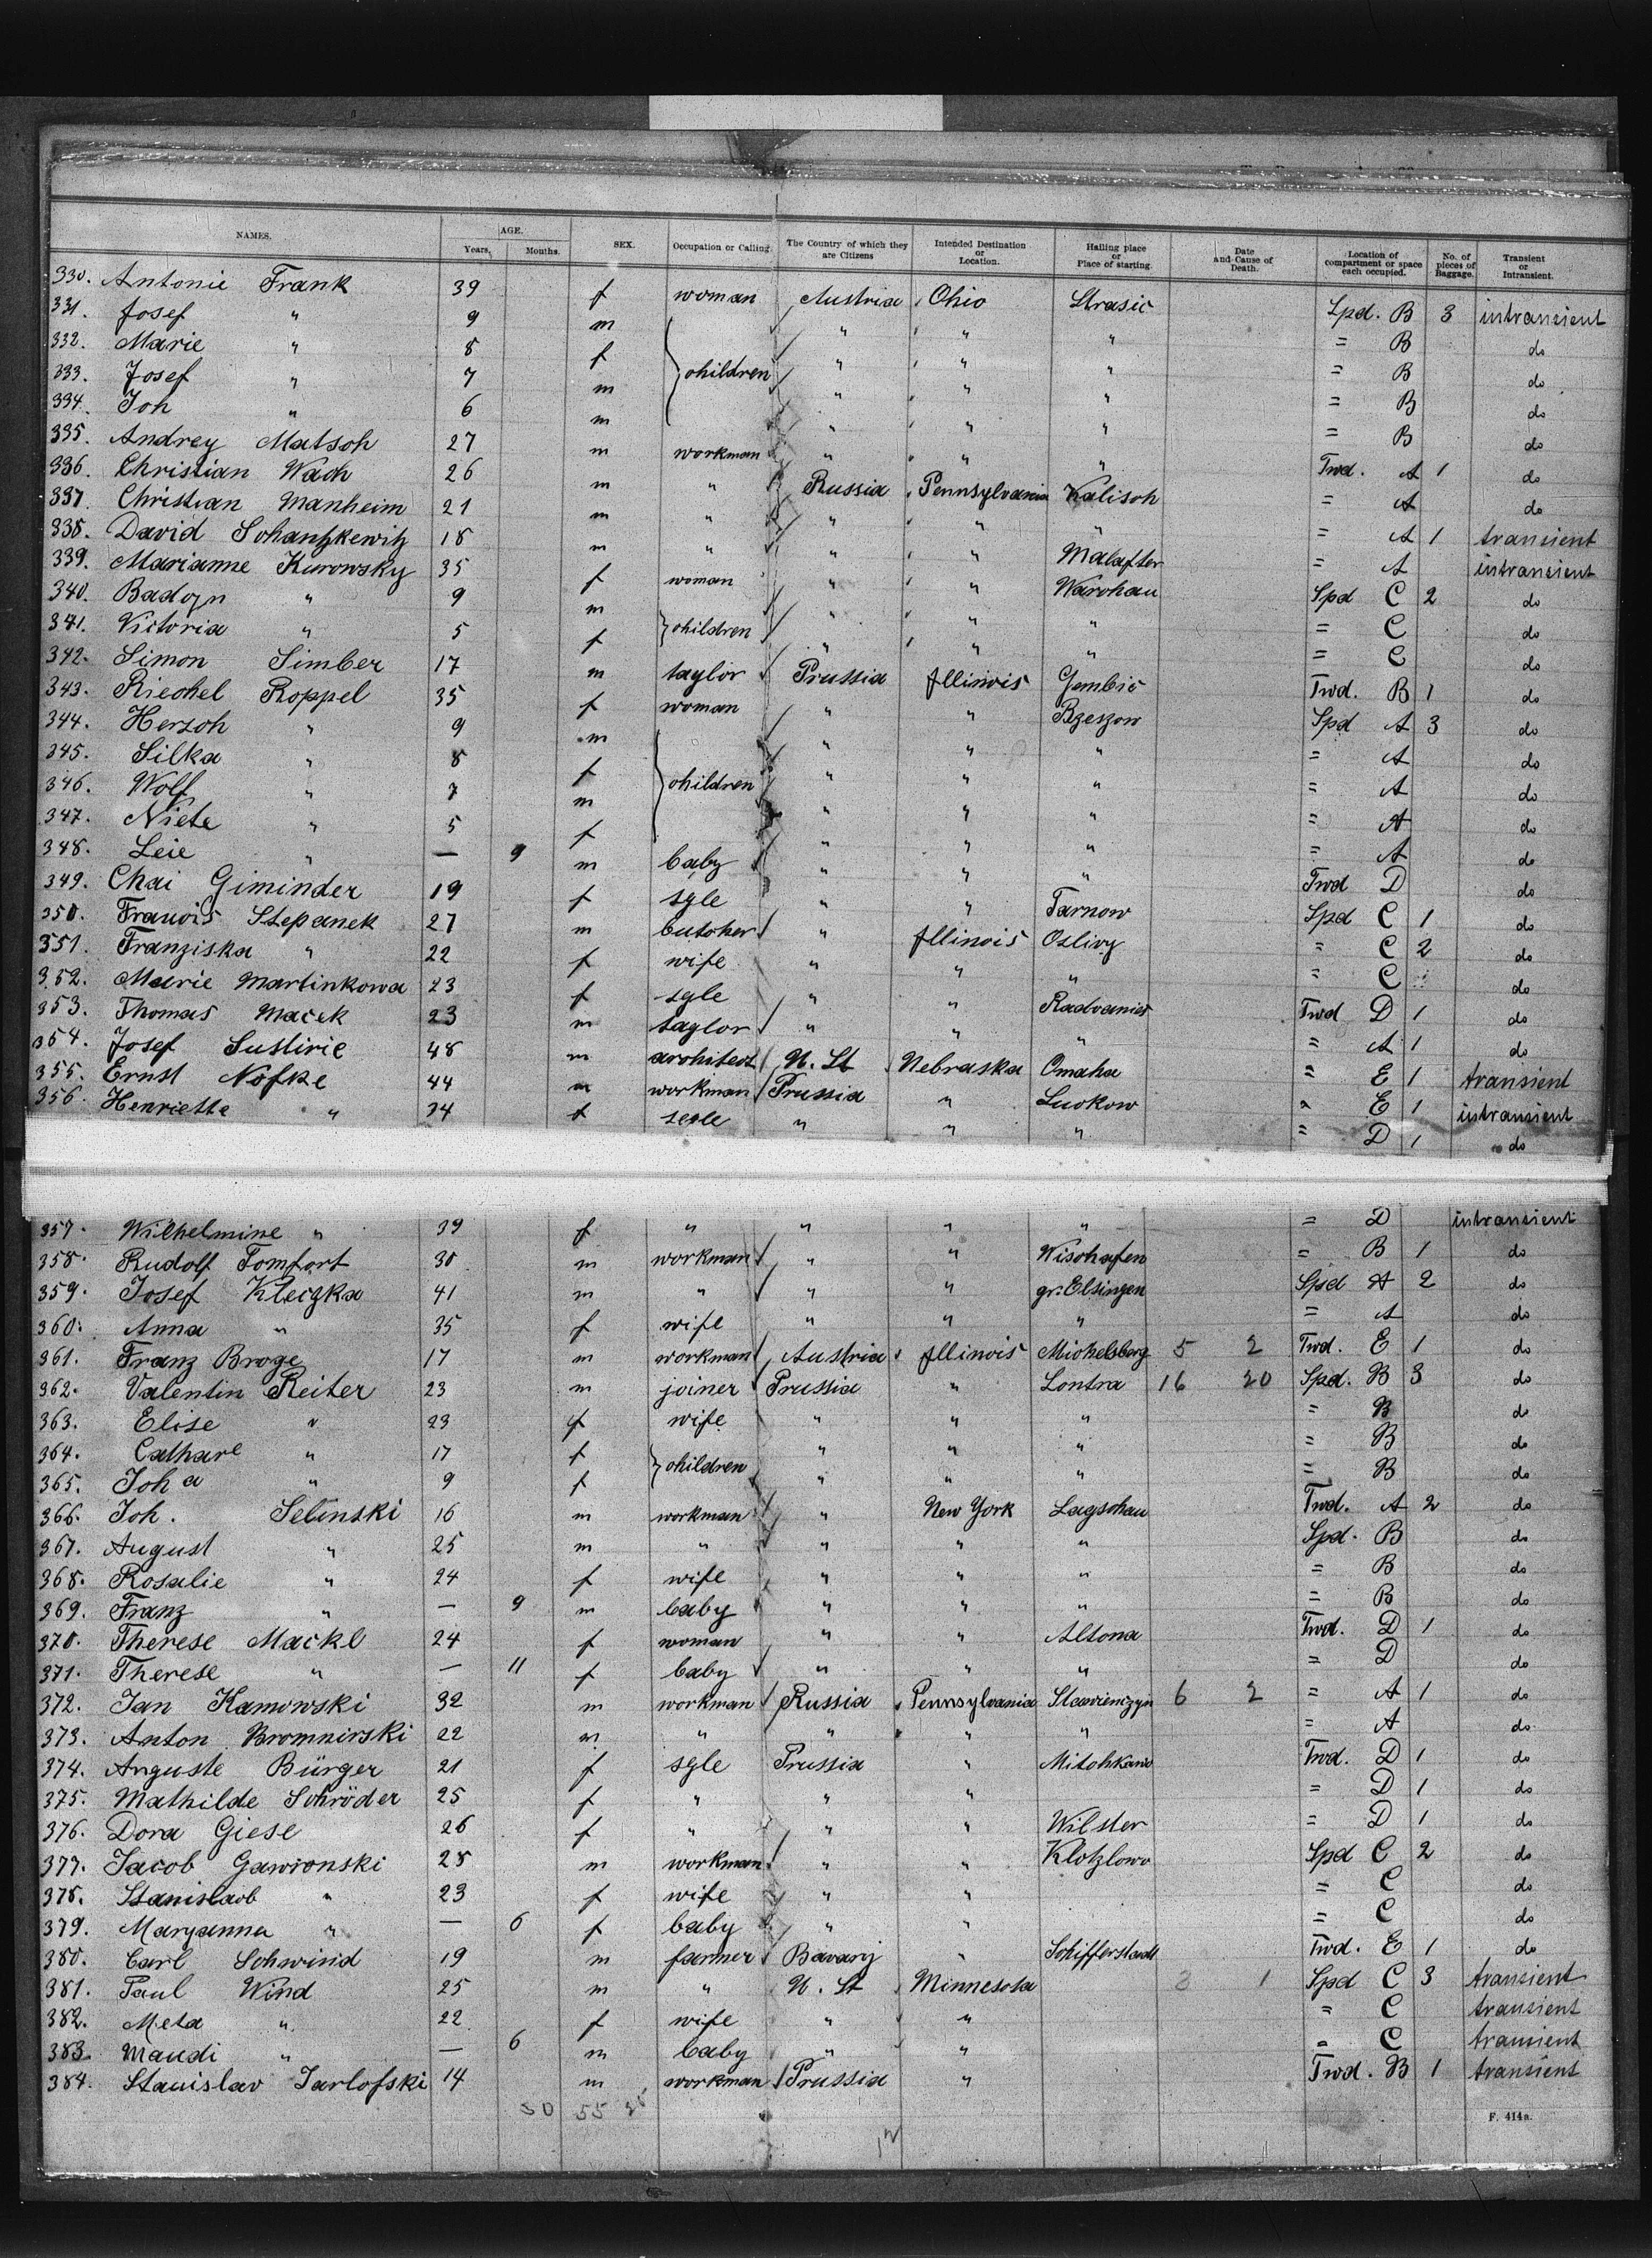 NAMES. AGE. Years. Months. SEX. Occupation or Calling. The Country of which they are Citizens Intended Destination or Location. Hailing place or Place of starting. Date and Cause of Death. Location of compartment or space each occupied. No. of pieces of Baggage. Transient or Intransient.
330. Antonie Frank 39 f woman Austria Ohio Strasic Spd. B 3 intransient
331. Josef " 9 m " " " = B do
332. Marie " 8 f children " " " = B do
333. Josef " 7 m " " " = B do
334. Joh " 6 m " " " = B do
335. Andrey Matsch 27 m workman " " " Twd. A 1 do
336. Christian Wach 26 m " Russia Pennsylvania Kalisch = A do
337. Christian Manheim 21 m " " " " = A 1 transient
338. David Schantzkewitz 18 m " " " Malafter = A intransient
339. Marianne Kurowsky 35 f woman " " Warchau Spd C 2 do
340. Badozn " 9 m children " " " = C do
341. Victoria " 5 f " " " = C do
342. Simon Simber 17 m taylor Prussia Illinois Gembic Twd. B 1 do
343. Riechel Roppel 35 f woman " " Rzeszow Spd A 3 do
344. Hersch " 9 m " " " = A do
345. Silka " 8 f children " " " = A do
346. Wolf " 7 m " " " = A do
347. Niete " 5 f " " " = A do
348. Leie " — 9 m baby " " " Twd D do
349. Chai Giminder 19 f sgle " " Tarnow Spd C 1 do
350. Franois Stepanek 27 m butcher " Illinois Oslivy " C 2 do
351. Franziska " 22 f wife " " " = C do
352. Marie Martinkowa 23 f sgle " " Radvanies Twd D 1 do
353. Thomas Macek 23 m taylor " " " = A 1 do
354. Josef Sustirie 48 m architect U. St Nebraska Omaha = E 1 transient
355. Ernst Nofke 44 m workman Prussia " Luckow " E 1 intransient
356. Henriette " 34 f segle " " " = D 1 do
357. Wilhelmine " 39 f " " " " = D intransient
358. Rudolf Tomfort 30 m workman " " Wischafen = B 1 do
359. Josef Kleczka 41 m " " " gr. Elsingen Spd A 2 do
360. Anna " 35 f wife " " " = A do
361. Franz Broge 17 m workman Austria Illinois Michelsberg 5 2 Twd. E 1 do
362. Valentin Reiter 23 m joiner Prussia " Lontra 16 20 Spd. B 3 do
363. Elise " 23 f wife " " " = B do
364. Cathare " 17 f children " " " = B do
365. Joh a " 9 f " " " = B do
366. Joh. Selinski 16 m workman " New York Lagschau Twd. A 2 do
367. August " 25 m " " " " Spd. B do
368. Rosalie " 24 f wife " " " = B do
369. Franz " — 9 m baby " " " = B do
370. Therese Mackl 24 f woman " " Altona Twd. D 1 do
371. Therese " — 11 f baby " " " = D do
372. Jan Kamowski 32 m workman Russia Pennsylvania 6 2 = A 1 do
373. Anton Bromnirski 22 m " " " " = A do
374. Auguste Bürger 21 f sgle Prussia " Twd. D 1 do
375. Mathilde Schröder 25 f " " " = D 1 do
376. Dora Giese 26 f " " " Wilster = D 1 do
377. Jacob Gawronski 28 m workman " " Klotzlowo Spd C 2 do
378. Stanislaob " 23 f wife " " = C do
379. Maryanna " — 6 f baby " " = C do
380. Carl Schwind 19 m farmer Bavarij " Schifferstadt Twd. E 1 do
381. Paul Wind 25 m " U. St Minnesota 3 1 Spd C 3 transient
382. Meta " 22 f wife " " " C transient
383. Maudi " — 6 m baby " " = C transient
384. Stanislav Jarlofski 14 m workman Prussia " Twd. B 1 transient
50 55
F. 414a.